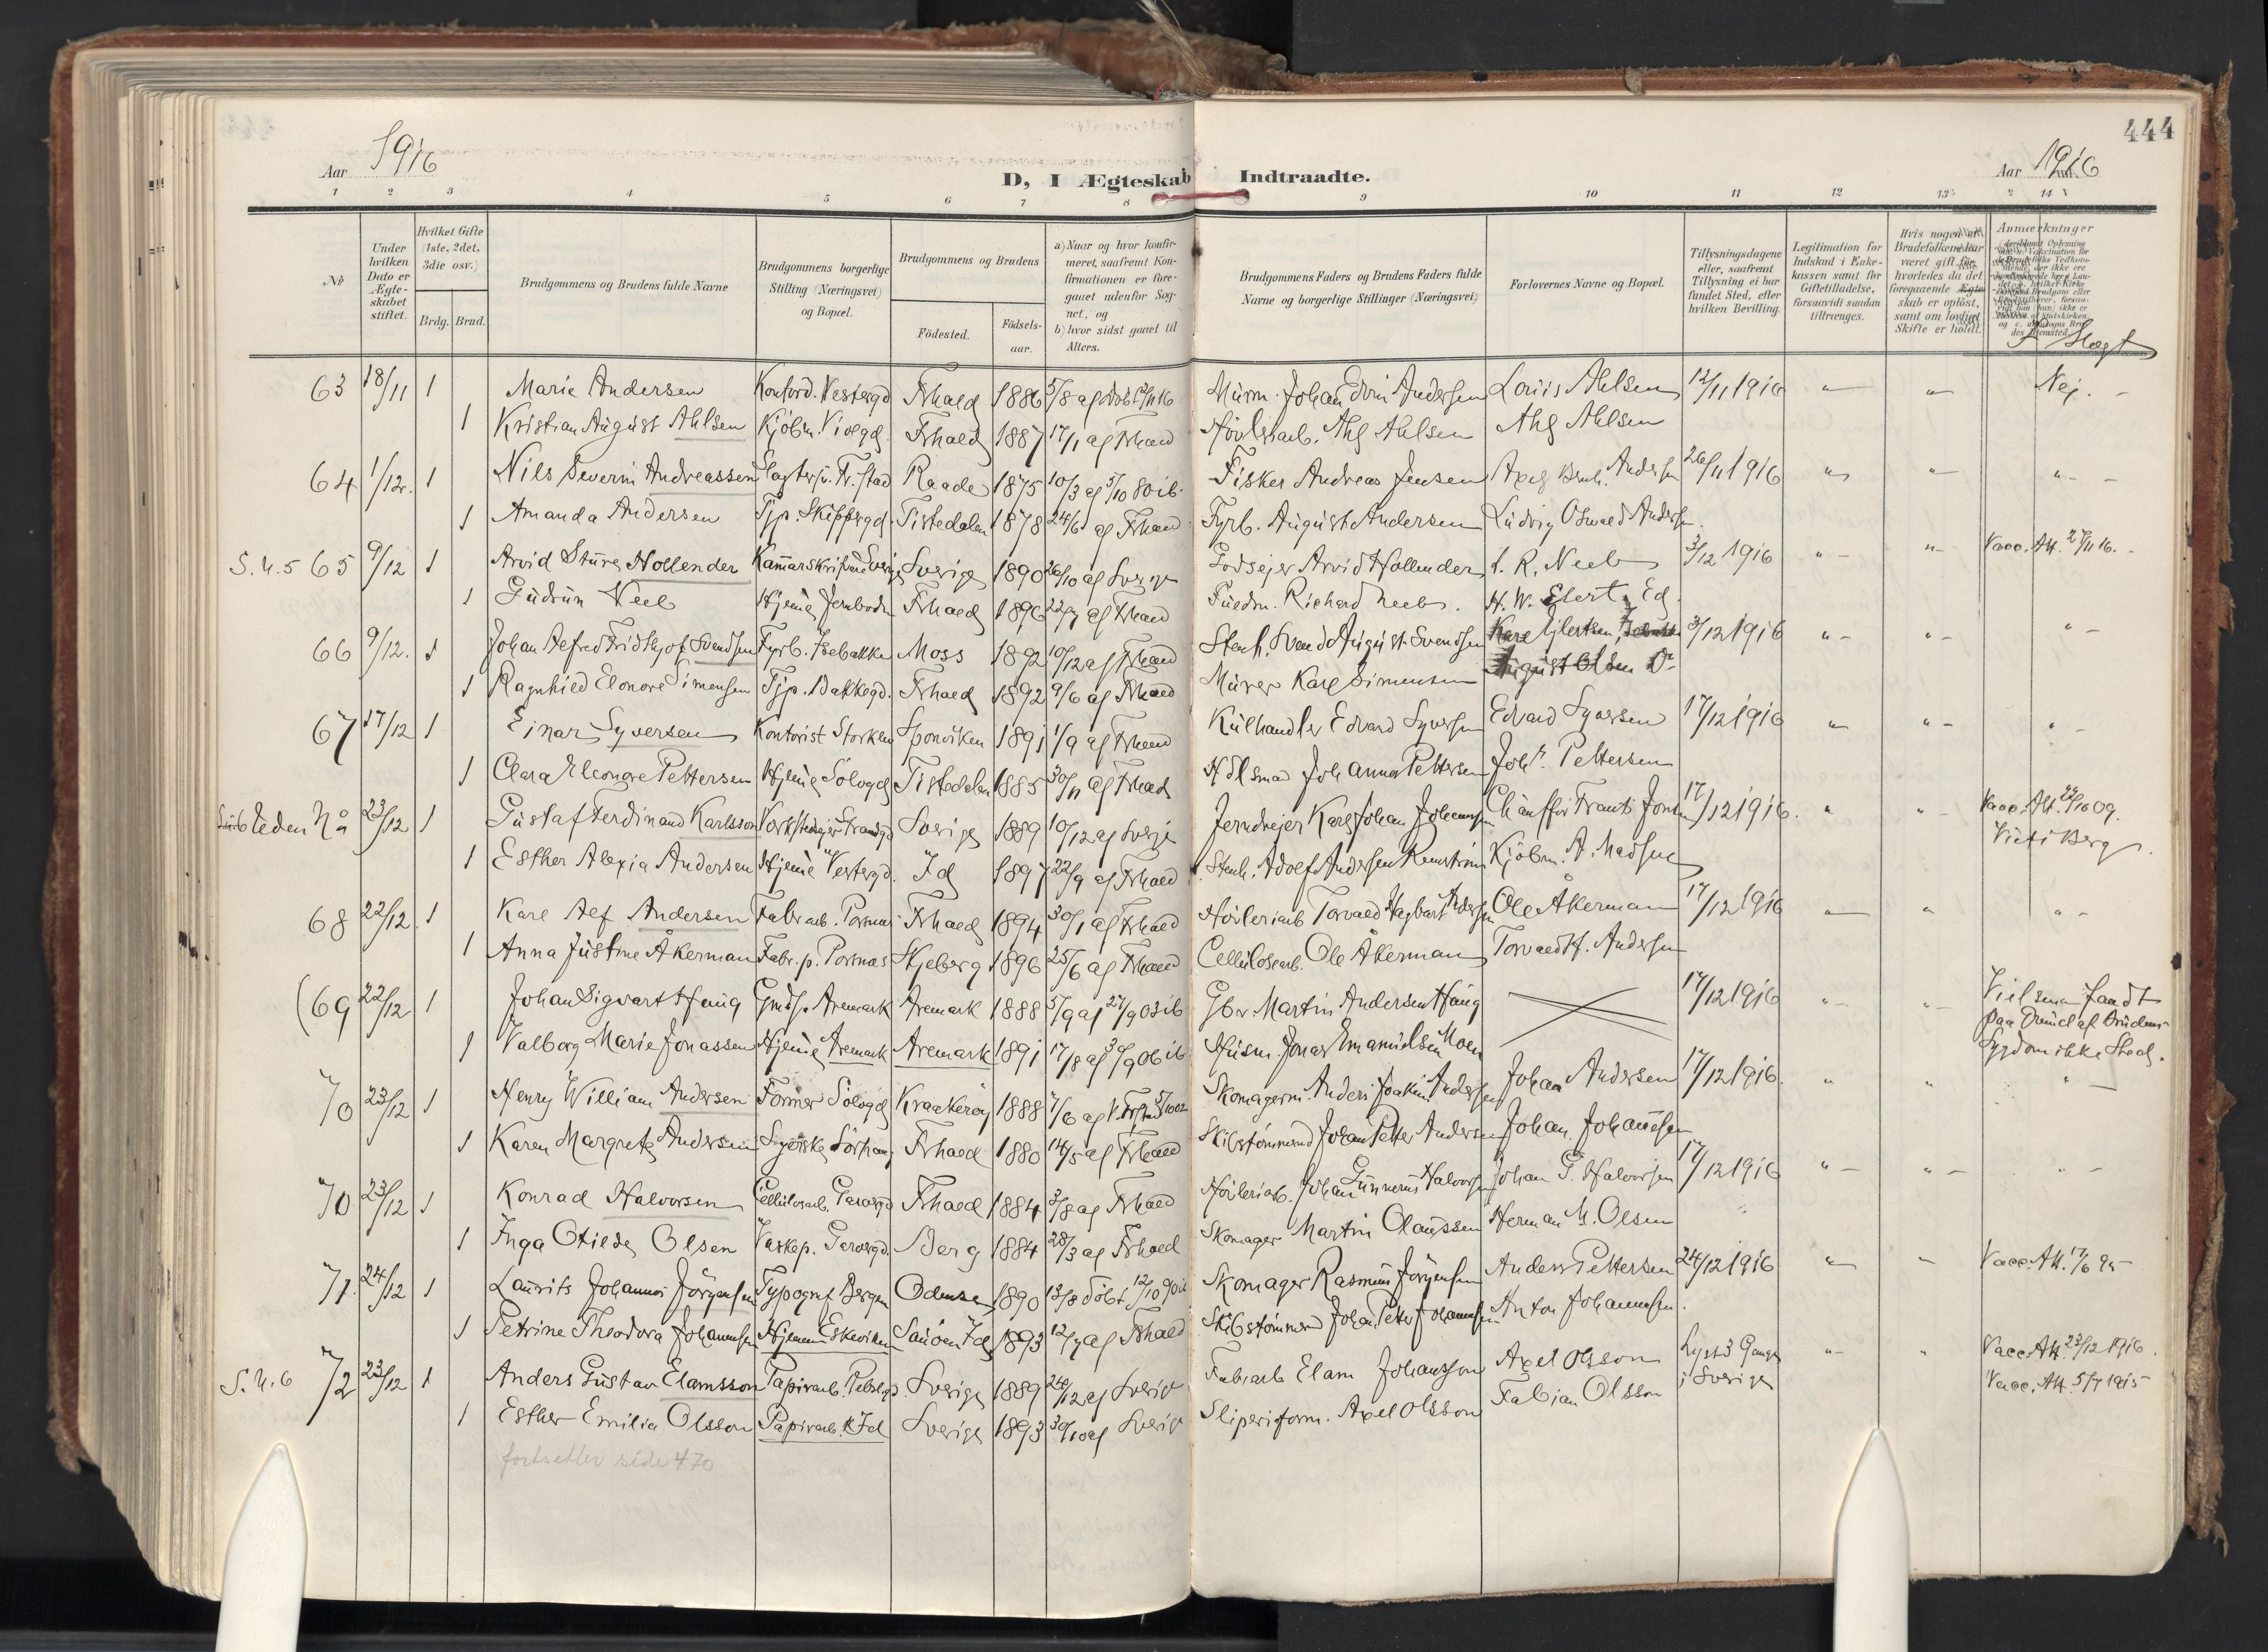 444
Aar 1916
D, I Ægteskab Indtraadte.
Aar 1916
1 2 3 4 5 6 7 8 9 10 11 12 13 14
No
Under hvilken Dato er Ægteskabet stiftet.
Hvilket Gifte (1ste, 2det, 3die osv.)
Brdg. Brud.
Brudgommens og Brudens fulde Navne
Brudgommens borgerlige Stilling (Næringsvei) og Bopæl.
Brudgommens og Brudens
Fødested.
Fødselsaar.
a) Naar og hvor konfirmeret, saafremt Konfirmationen er foregaaet udenfor Sognet, og
b) hvor sidst gaaet til Alters.
Brudgommens Faders og Brudens Faders fulde Navne og borgerlige Stillinger (Næringsvei)
Forlovernes Navne og Bopæl.
Tillysningsdagene eller, saafremt Tillysning ei har fundet Sted, efter hvilken Bevilling.
Legitimation for Indskud i Enkekassen samt for Giftetilladelse, forsaavidt saadan tiltrænges.
Hvis nogen af Brudefolkene har været gift før, hvorledes da det foregaaende Ægteskab er opløst, samt om lovligt Skifte er holdt.
Anmerkninger
Slægt
63 18/11 1 Marie Andersen Kontord. Vestergd Frhald 1886 Murm. Johan Edvin Andersen Louis Ahlsen 12/11 1916 " " Nej. -
1 Kristian August Ahlsen Kjøbm. Violgd. Frhald 1887 17/1 af Frhald Høvleriarb. Ahlsen Ahlsen
64 1/12. 1 Nils Severin Andreassen Fr.stad Raade 1875 10/3 af 5/10 80 ib. Fisker Andreas Jensen Axel Bernh. Andersen 26/11 1916 " " "
1 Amanda Andersen Tjp. Skippergd. Tistedalen 1878 24/6 af Frhald Fyrb. August Andersen Ludvig Oswald Andersen.
S.U.5 65 9/12 1 Arvid Sture Hollender Kamarskriver Sverige Sverige 1890 26/10 af Sverige Godsejer Arvid Hollender R. Neeb 3/12 1916 " " Vacc. Att. 27/11 16. -
1 Gudrun Neeb Hjeme Jernbadn Frhald 1896 22/7 af Frhald Fuldm. Richard Neeb. H. W. Elert, Id.
66 9/12. 1 Johan Alfred Fridthjof Svendsen Fyrb. Isebakke Moss 1892 10/12 af Frhald Stenh. Svend August Svendsen Karl Eilertsen, 3/12 1916 " " "
1 Ragnhild Elonore Simensen Tjp. Bakkegd. Frhald 1892 9/6 af Frhald Murer Karl Simensen August Olsen Do
67 17/12 1 Einar Syversen Kontorist Storken Sponviken 1891 1/9 af Frhald Kulhandler Edvard Syversen Edvard Syversen 17/12 1916 " " "
1 Clara Eleonore Pettersen Hjeme Sølvgd Tistedalen 1885 30/11 af Frhald Johannes Pettersen Johs. Pettersen
Uden No 23/12 1 Gustaf Ferdinand Karlsson Verkstedejer Strandgd Sverige 1889 10/12 af Sverje Jerndrejer Karl Johan Johannsen Chauffør Frantz Jonsen 17/12 1916. " " Vacc. Att. 22/10 09.
Viet i Berg.
1 Esther Alexia Andersen Hjeme Vestergd. Id 1897 22/9 af Frhald Stenh. Adolf Andersen Kjøbm. A. Madsen
68 22/12. 1 Karl Alf Andersen Fabr. arb. Porsnes Frhald 1894 30/1 af Frhald Høvleriarb Torvald Hagbart Andersen Ole Åkerman 17/12 1916 " " "
1 Anna Justine Åkerman Fabr. p. Porsnæs Skjeberg 1896 25/6 af Frhald Cellulosearb. Ole Åkerman Torvald H. Andersen
(69 22/12 1 Johan Sigvart Haug Gmdsb. Aremark Aremark 1888 5/9 af 27/9 03 ib Gbr. Martin Andersen Haug 17/12 1916 " " Vielsen fandt
paa Grund af Brudens
Sygdom ikke Sted.
1 Valborg Marie Jonassen Hjeme Aremark Aremark 1891 17/8 af 30/9 06 ib Husm. Jonas Emanuelsen Moen
70 23/12 1 Henry William Andersen Former Sølvgd Kraakerøy 1888 7/6 af V. Fr.stad 5/10 02 Skomagerm. Anders Joakim Andersen Johan Andersen 17/12 1916. " " "
1 Karen Margrete Andersen Syerske Sørhaug Frhald 1880 14/5 af Frhald Skibstømmermd Johan Petter Andersen Johan Johannesen
70 23/12 1 Konrad Halvorsen Cellulosearb. Garvergd Frhald 1884 3/8 af Frhald Høvleriarb. Johan Gunnerius Halvorsen Johan G. Halvorsen 17/12 1916 " " "
1 Inga Otilde Olsen Vaskep. Garvergd. Berg 1884 28/3 af Frhald Skomager Martin Olaussen Herman M. Olsen
71. 24/12 1 Laurits Johannes Jørgensen Typograf Bergen Odense 1890 13/8 Døbt 12/10 90 ib Skomager Rasmus Jørgensen Anders Pettersen 24/12 1916 " " Vacc. Att. 17/6 95
1 Petrine Theodora Johannesen Hjemme Eskeviken Sauøen Id 1893 12/7 af Frhald Skibstømmermd Johan Petter Johannesen Anton Johannesen.
S.U.6 72 23/12 1 Anders Gustav Elamsson Papirarb. Pebelgd. Sverige 1889 24/12 af Sverig Fabrarb Elam Johansson Axel Olsson Lyst 3 Gange i Sverige " " Vacc. Att. 23/12 1916.
1 Esther Emilia Olsson Papirarb. Id Sverige 1893 30/10 af Sverig Sliperiform. Axel Olsson Fabian Olsson Vacc. Att. 5/7 1915
fortsetter side 470